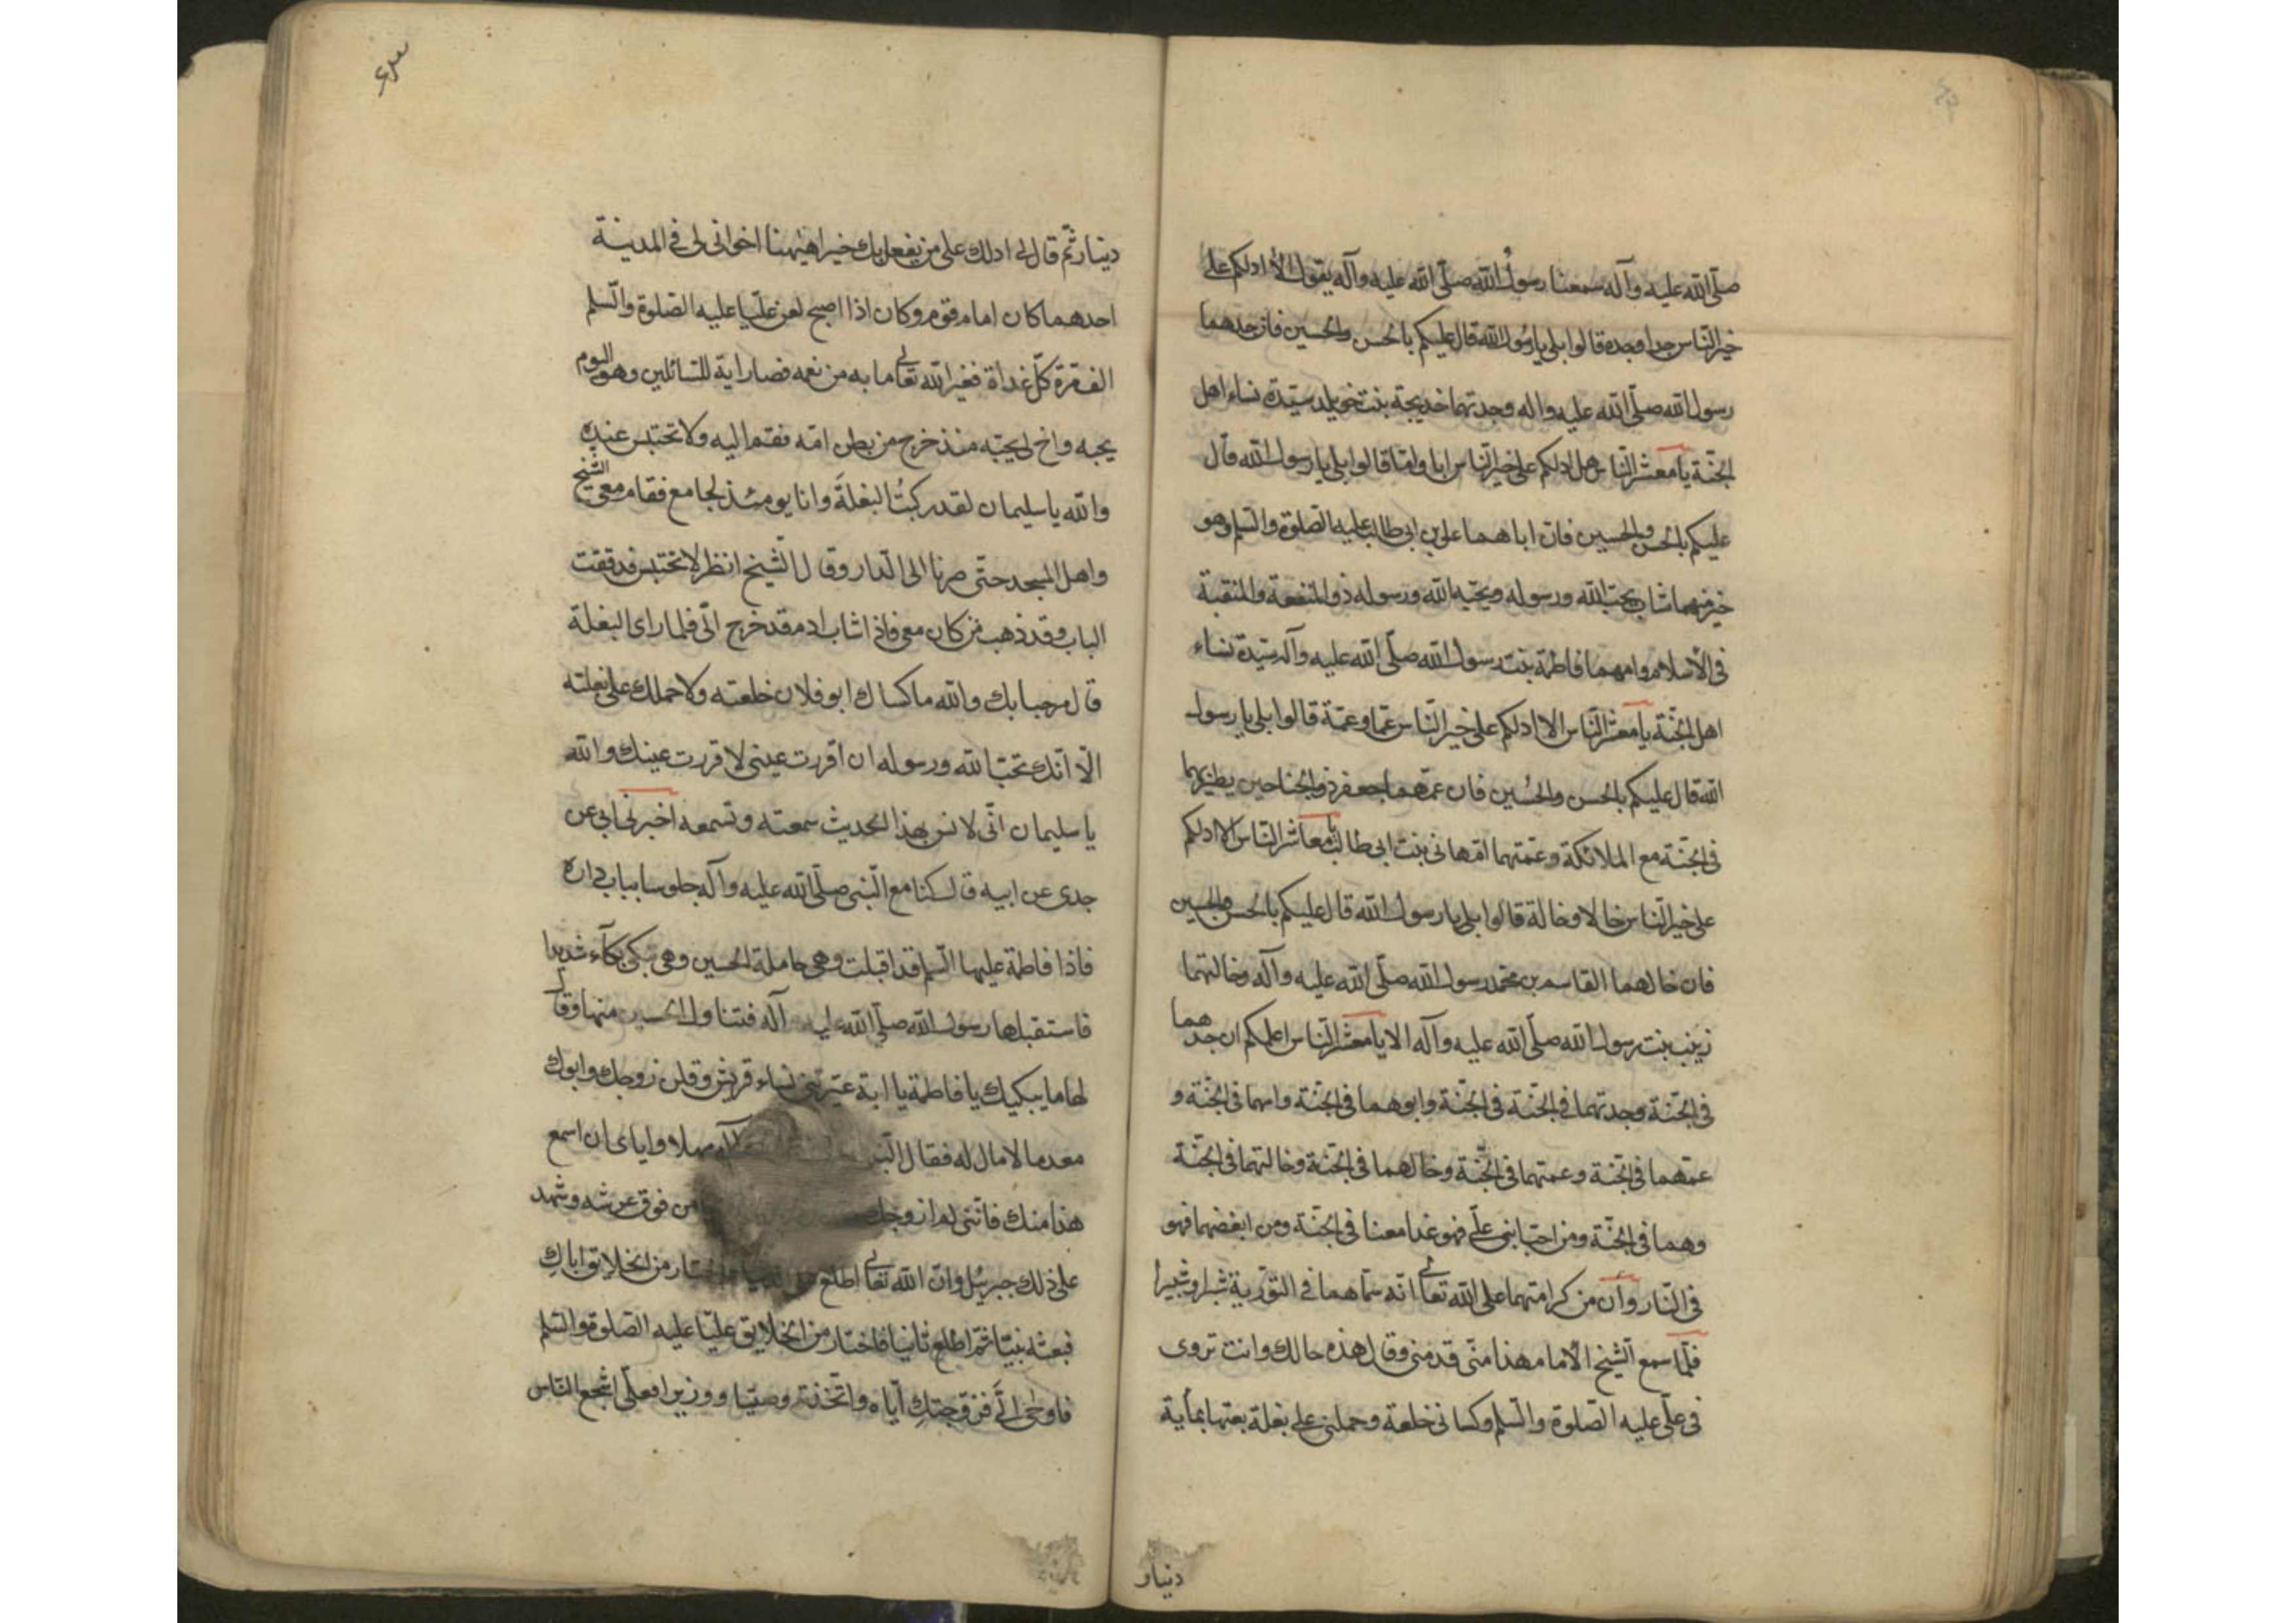 صلّى الله عليه وآله سمعنا رسول الله صلّى الله عليه وآله يقول الا ادلكم على
خير النّاس جدا وجدة قالوا بلى يا رسول الله قال عليكم بالحسن والحسين فان جدهما
رسول الله صلّى الله عليه واله وجدتهما خديجة بنت خويلد سيّدة نساء اهل
الجنّة يا معشر النّاس هل ادلكم على خير النّاس ابا وامّا قالوا بلى يا رسول الله قال
عليكم بالحسن والحسين فان اباهما علي بن ابى طالب عليه الصلوة والسّلم وهو
خير منهما شاب يحبّ الله ورسوله ويحبّه الله ورسوله ذو المنفعة والمنقبة
فى الاسلام وامهما فاطمة بنت رسول الله صلّى الله عليه وآله سيّدة نساء
اهل الجنّة يا معشر النّاس الا ادلكم على خير النّاس عمّا وعمّة قالوا بلى يا رسول
الله قال عليكم بالحسن والحُسين فان عمّهما جعفر ذو الجناحين يطير بهما
فى الجنّة مع الملائكة وعمّتهما امّ هانى بنت ابى طالب يا معاشر النّاس الا ادلكم
على خير النّاس خالا وخالة قالوا بلى يا رسول الله قال عليكم بالحسن والحسين
فان خالهما القاسم بن محمّد رسول الله صلّى الله عليه وآله وخالتهما
زينب بنت رسول الله صلّى الله عليه وآله الا يا معشر النّاس اعلمكم ان جدهما
فى الجنّة وجدتهما فى الجنّة فى الجنّة وابوهما فى الجنّة وامهما فى الجنّة و
عمّهما فى الجنّة وعمتهما فى الجنّة وخالهما فى الجنّة وخالتهما فى الجنّة
وهما فى الجنّة ومن احبّ ابنى علىّ فهو غدا معنا فى الجنّة ومن ابغضهما فهو
فى النّار وانّ من كرامتهما على الله تعالى انّه سمّاهما فى التورية شبرا وشبيرا
فلمّا سمع الشّيخ الامام هذا منّى قدمنى وقال هذه حالك وانت تروى
فى علىّ عليه الصّلوة والسّلم وكسانى خلعة وحملنى على بغلة بعتها بمأية
دينار
دينار ثمّ قال لى ادلك على من يفعل بك خيرا هيهنا اخوانى لى فى المدينة
احدهما كان امام قوم وكان اذا اصبح لعن عليّا عليه الصّلوة والسّلم
الف مرّة كلّ غداة فغير الله تعالى ما به من نعمه فصار اية للسّائلين وهو اليوم
يحبه واخ لى يحبّه منذ خرج من بطن امّه فقم اليه ولا تحتبس عنده
والله يا سليمان لقد ركبتُ البغلةَ وانا يومئذ لجامع فقام معى الشّيخ
واهل المسجد حتّى صرنا الى الدّار وقال الشّيخ انظر لا تحتبس فدققت
الباب وقد ذهب من كان معى فاذا شاب ادم قد خرج الىّ فلما راى البغلة
قال مرحبا بك والله ما كساك ابو فلان خلعته ولا حملك على بغلته
الّا انّك تحبّ الله ورسوله ان اقررت عينى لا قررت عينك والله
يا سليمان انّى لا نس بهذا الحديث سمعته وتسمعه اخبرنى ابى عن
جدى عن ابيه قال كنا مع النّبى صلّى الله عليه وآله جلوسا بباب داره
فاذا فاطمة عليها السّلم قد اقبلت وهى حاملة الحسين وهى تبكى بكاء شديدا
فاستقبلها رسول الله صلّى الله عليه وآله فتناول الحسين منها وقال
لها ما يبكيك يا فاطمة يا ابة عيّرتنى نساء قريش وقلن زوجك وابوك
معدما لا مال له فقال النّبى مهلا واياى ان اسمع
هذا منك فانّنى لم ازوجك من فوق عرشه وشهد
على ذلك جبرئيل وانّ الله تعالى اطلع فاختار من الخلايق اباك
فبعثه نبيّا ثمّ اطلع ثانيا فاختار من الخلايق عليّا عليه الصّلوة والسّلم
فاوحى الىّ فزوّجتك ايّاه واتّخذته وصيّا ووزيرا فعلىّ اشجع النّاس